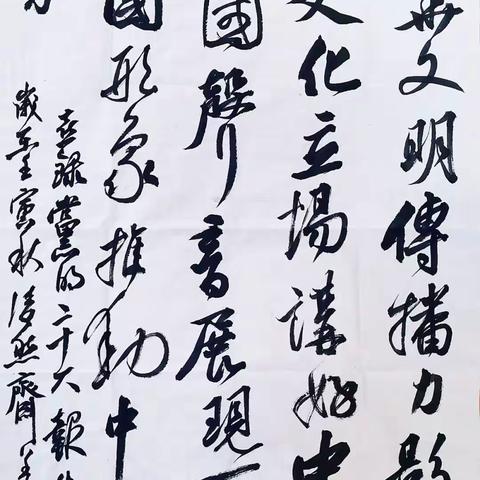 華文明傳播力影
文化立場講好中
國聲音展現
國形象推動中
喜錄黨的二十大報
歲在壬寅秋